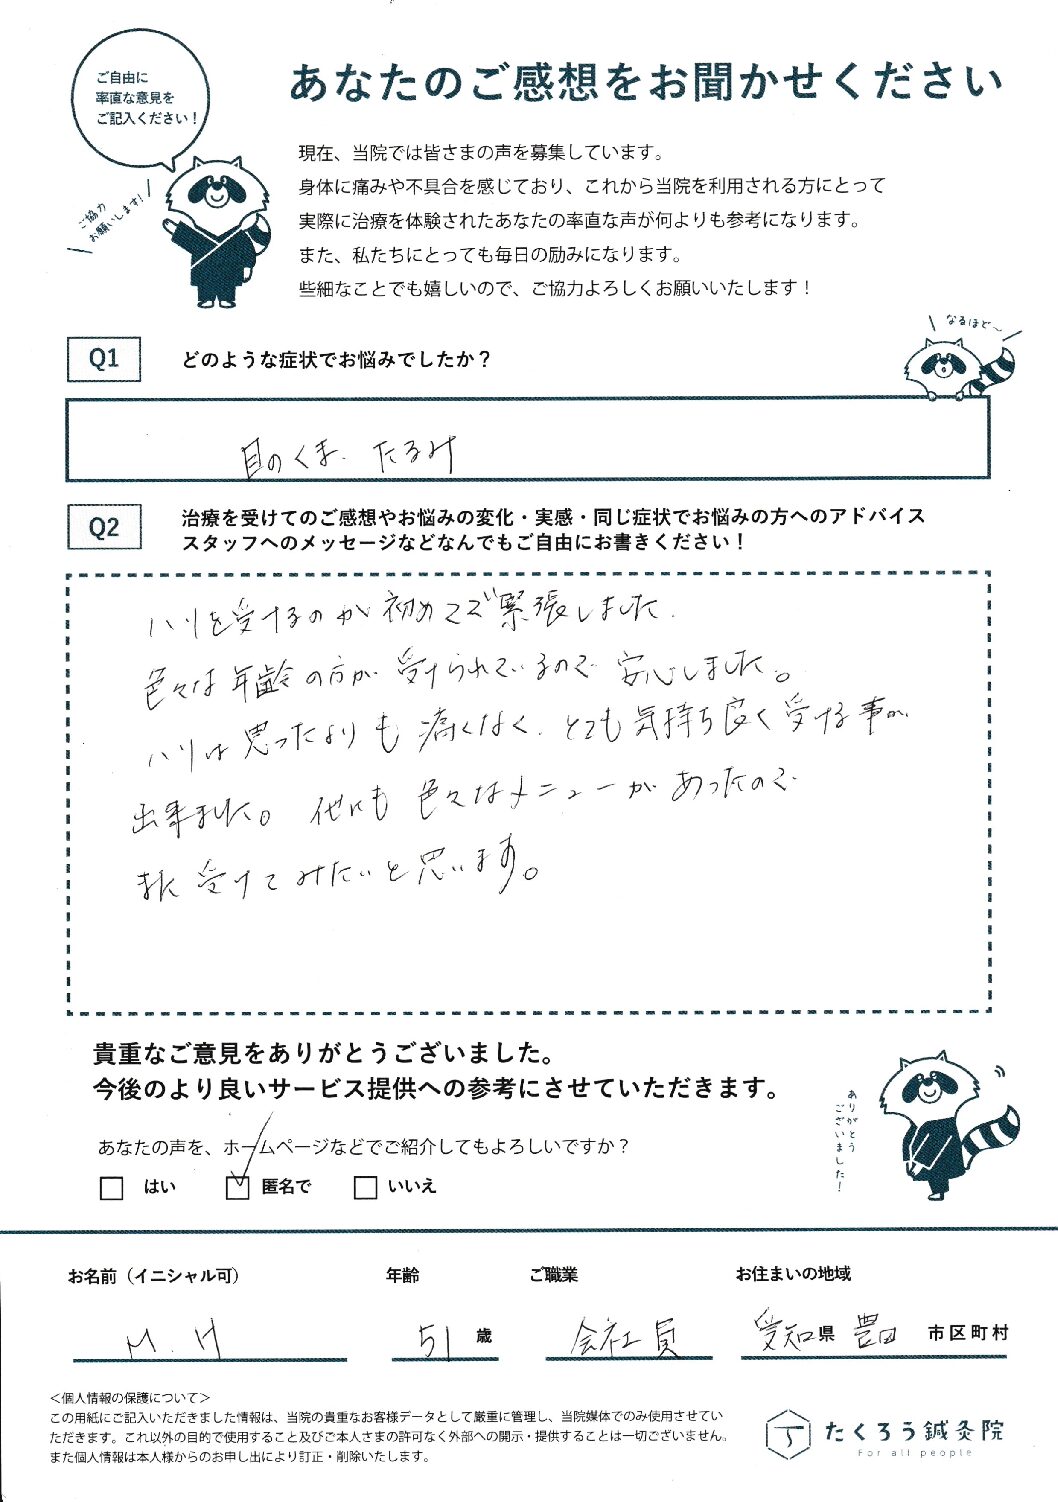 ご自由に
率直な意見を
ご記入ください！
あなたのご感想をお聞かせください
ご協力
お願いします！
現在、当院では皆さまの声を募集しています。
身体に痛みや不具合を感じており、これから当院を利用される方にとって
実際に治療を体験されたあなたの率直な声が何よりも参考になります。
また、私たちにとっても毎日の励みになります。
些細なことでも嬉しいので、ご協力よろしくお願いいたします！
なるほど〜
Q1 どのような症状でお悩みでしたか？
目のくま、たるみ
Q2 治療を受けてのご感想やお悩みの変化・実感・同じ症状でお悩みの方へのアドバイス
スタッフへのメッセージなどなんでもご自由にお書きください！
ハリを受けるのが初めてで緊張しました。
色々な年齢の方が受けられているので安心しました。
ハリは思ったよりも痛くなく、とても気持ち良く受ける事が
出来ました。他にも色々なメニューがあったので
また受けてみたいと思います。
貴重なご意見をありがとうございました。
今後のより良いサービス提供への参考にさせていただきます。
ありがとう
ございました！
あなたの声を、ホームページなどでご紹介してもよろしいですか？
はい 匿名で いいえ
お名前（イニシャル可） 年齢 ご職業 お住まいの地域
M.H 51歳 会社員 愛知県 豊田 市区町村
＜個人情報の保護について＞
この用紙にご記入いただきました情報は、当院の貴重なお客様データとして厳重に管理し、当院媒体でのみ使用させてい
ただきます。これ以外の目的で使用すること及びご本人さまの許可なく外部への開示・提供することは一切ございません。
また個人情報は本人様からのお申し出により訂正・削除いたします。
たくろう鍼灸院
For all people